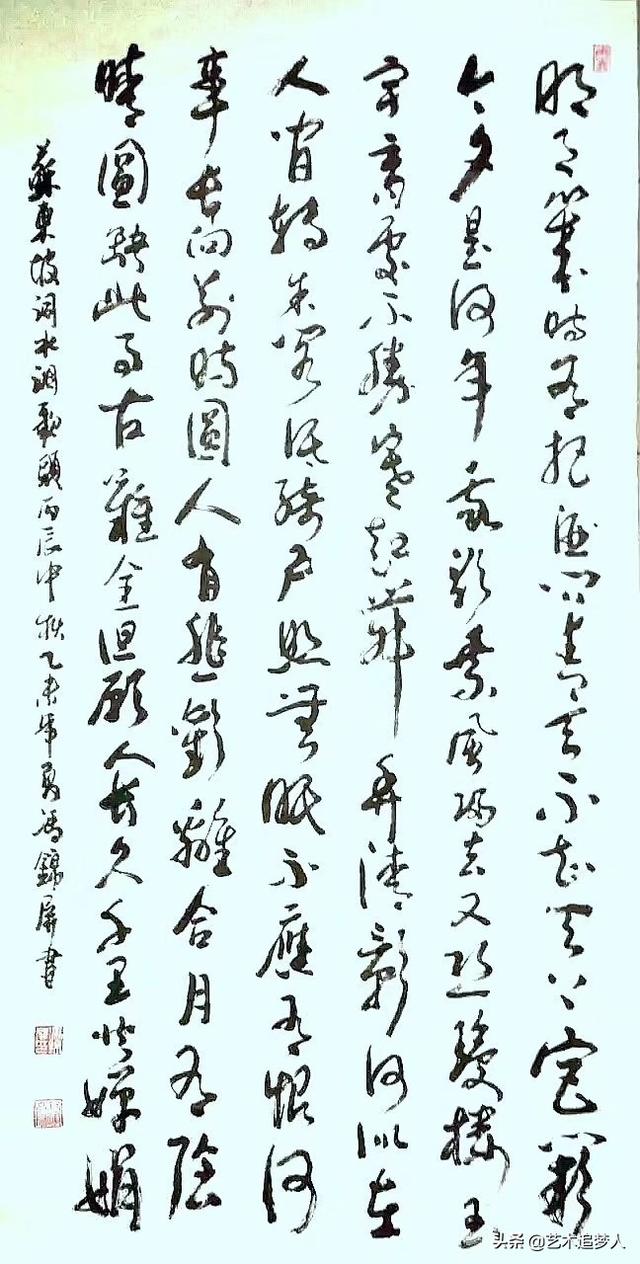 明月幾時有把酒問青天不知天上宮闕
今夕是何年我欲乘風歸去又恐瓊樓玉
宇高處不勝寒起舞弄清影何似在
人間轉朱閣低綺戶照無眠不應有恨何
事長向別時圓人有悲歡離合月有陰
晴圓缺此事古難全但願人長久千里共嬋娟
蘇東坡詞水調歌頭丙辰中秋乙未年夏馮錦屏書
头条 @艺术追梦人